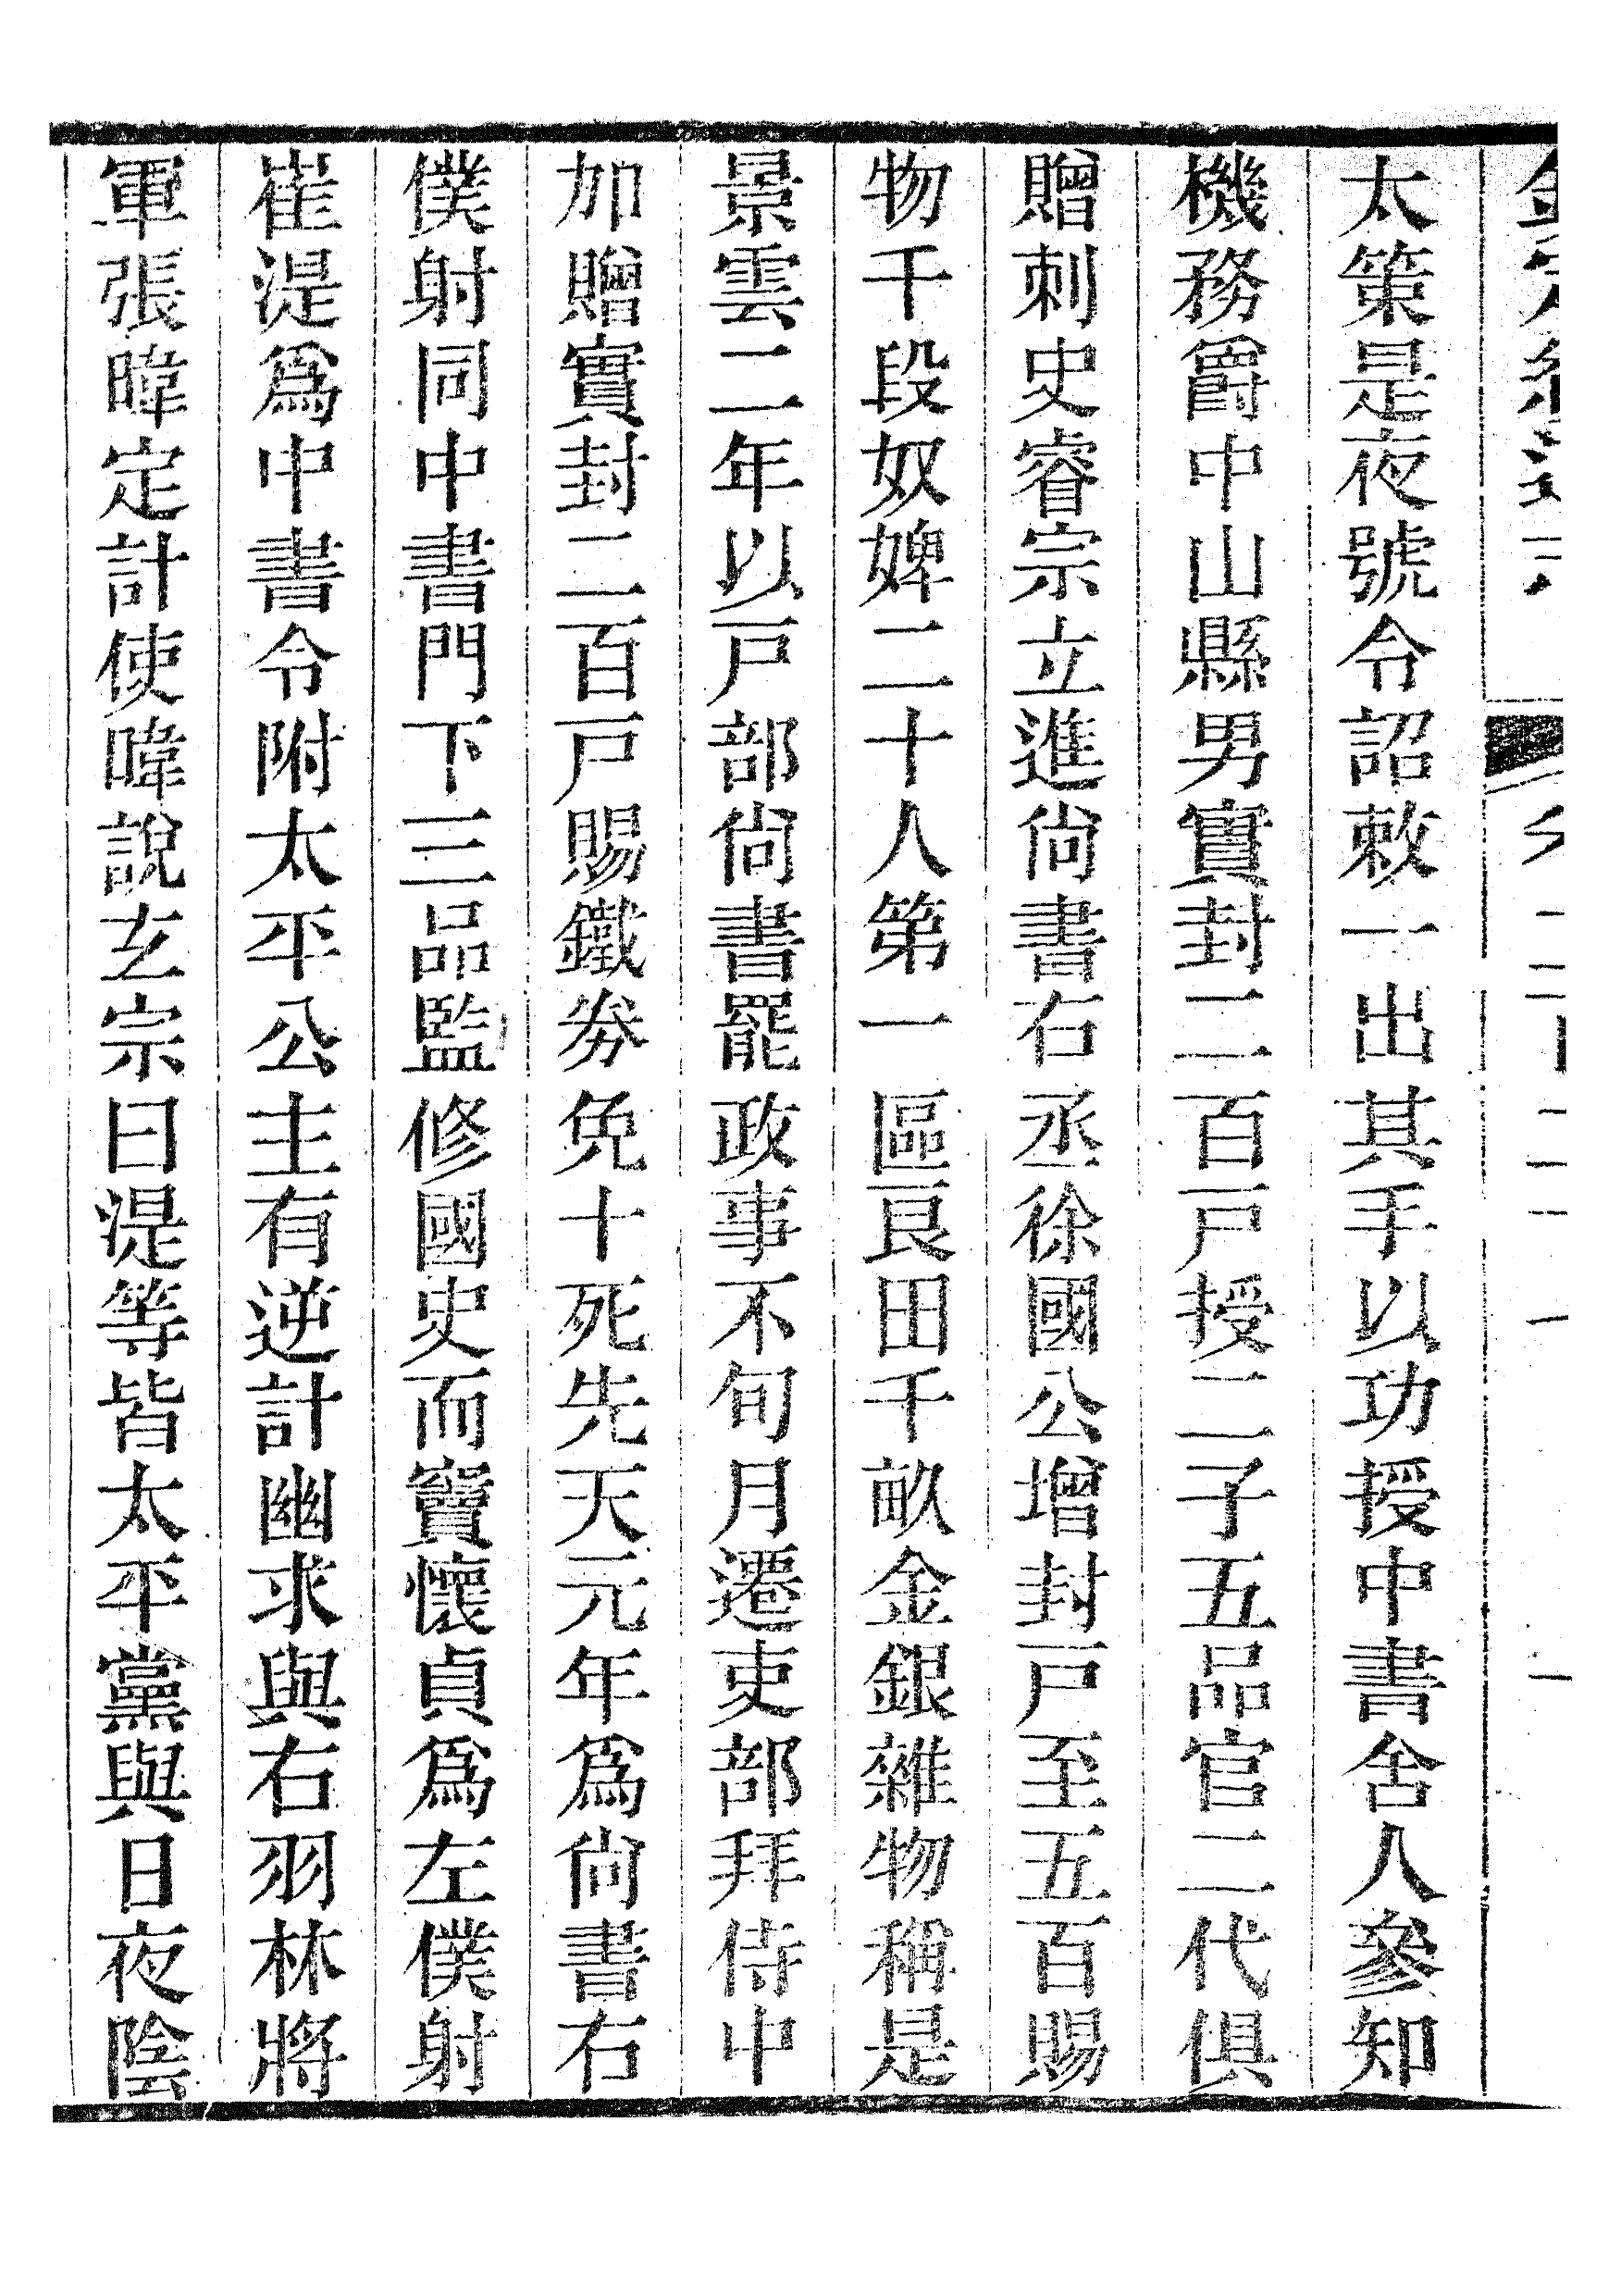 太策是夜號令詔敕一出其手以功授中書舍人參知
機務爵中山縣男實封二百戸授二子五品官二代俱
贈刺史睿宗立進尙書右丞徐國公增封戸至五百賜
物千段奴婢二十人第一區良田千畝金銀雜物稱是
景雲二年以戸部尙書罷政事不旬月遷吏部拜侍中
加贈實封二百戸賜鐵劵免十死先天元年爲尙書右
僕射同中書門下三品監修國史而竇懷貞爲左僕射
崔湜爲中書令附太平公主有逆計幽求與右羽林將
軍張暐定計使暐說玄宗曰湜等皆太平黨與日夜陰